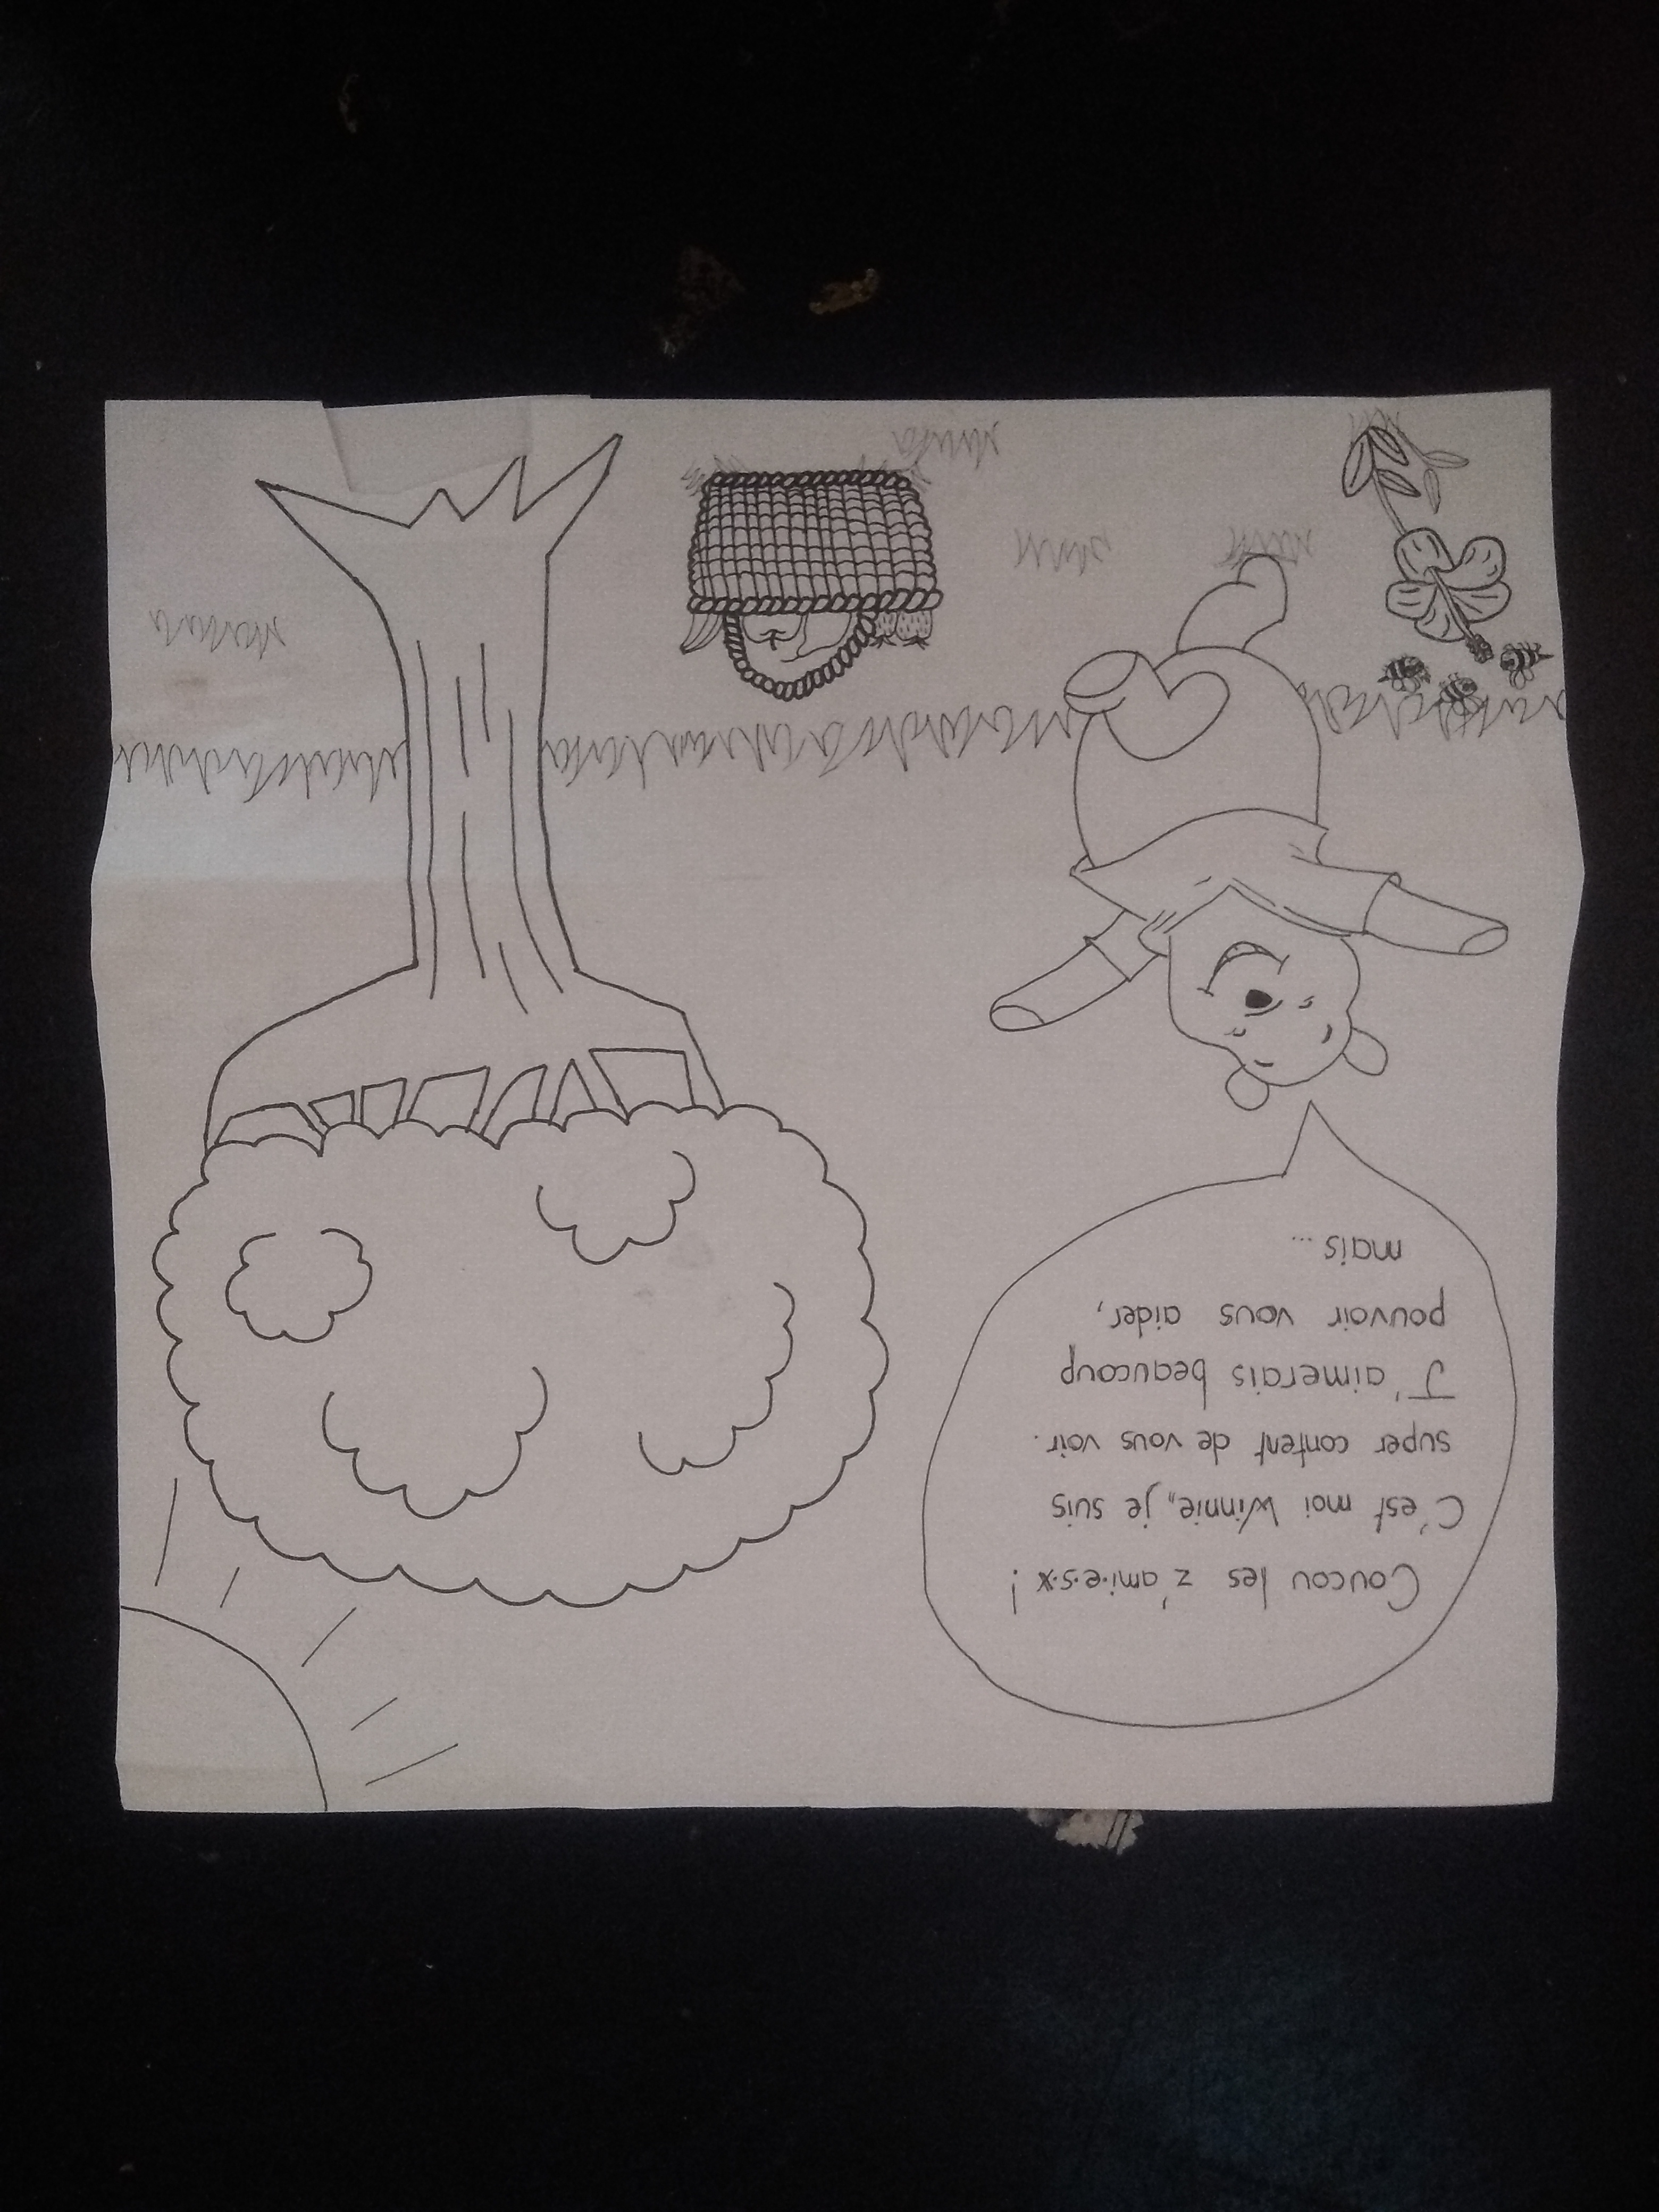 Coucou les z'ami·e·s·x !
C'est moi Winnie, je suis
super content de vous voir.
J'aimerais beaucoup
pouvoir vous aider,
mais ...